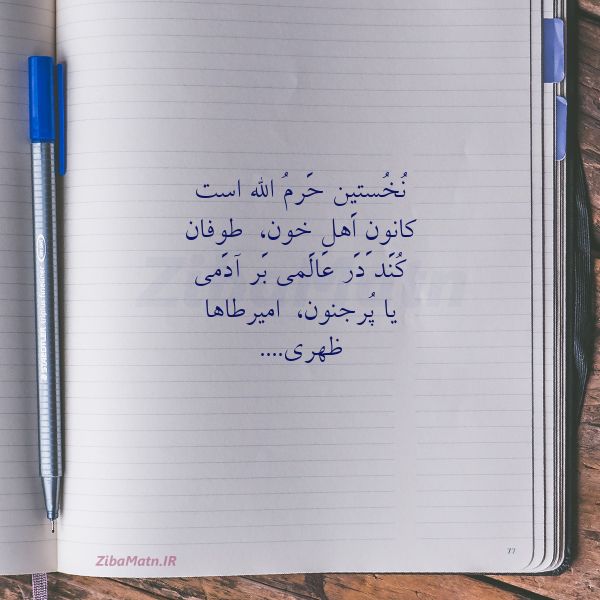 نُخُستین حَرمُ الله است
کانون اَهلِ خون، طوفان
کُنَد دَر عالَمی بَر آدَمی
یا پُرجنون، امیرطاها
ظهری....
ZibaMatn
ZibaMatn.IR
77